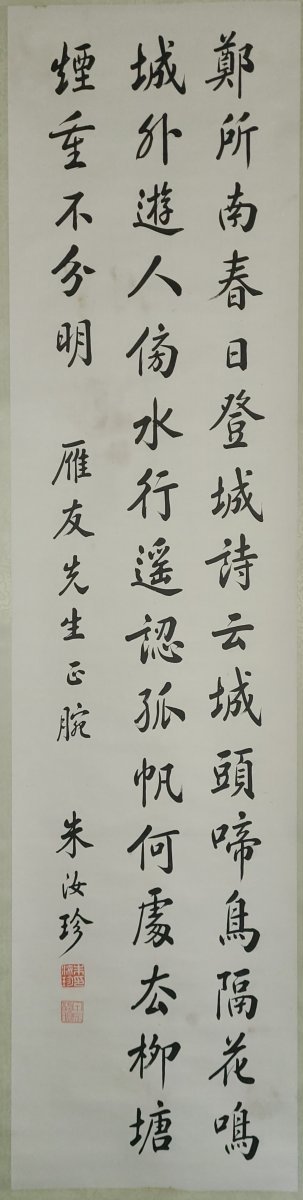 鄭所南春日登城詩云城頭啼鳥隔花鳴
城外遊人傍水行遥認孤帆何處去柳塘
煙重不分明
雁友先生正腕
朱汝珍